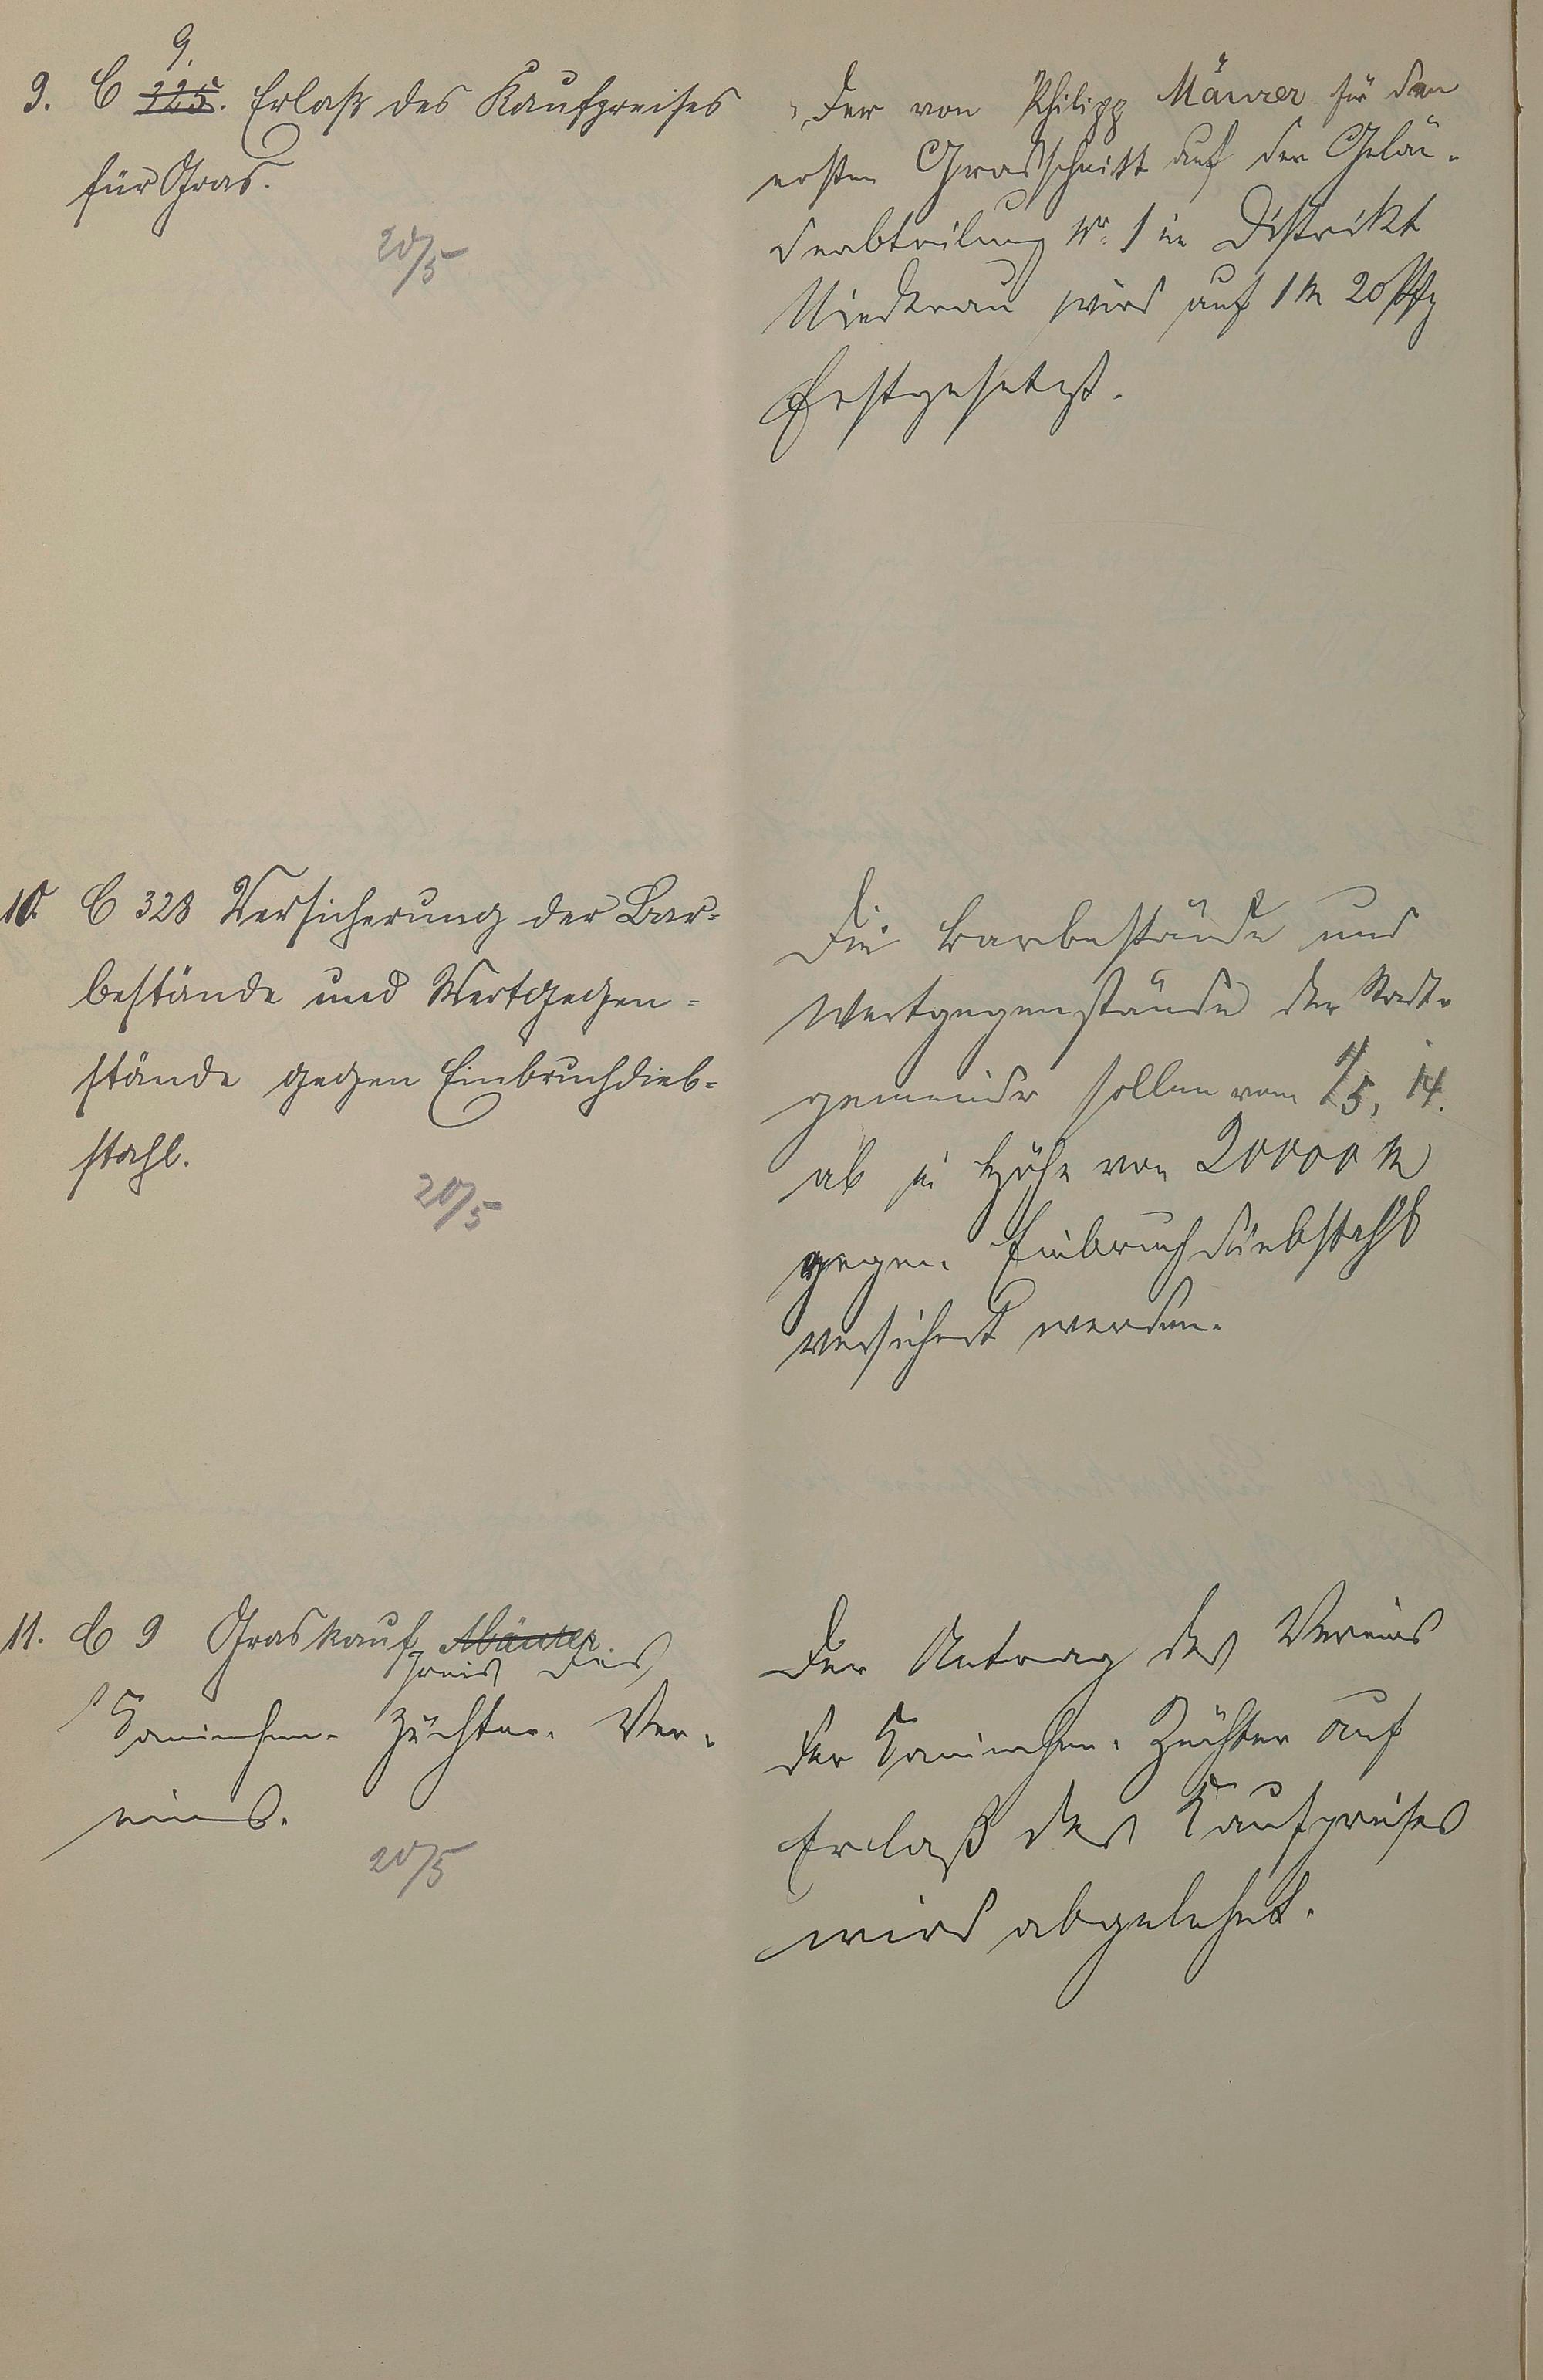 9.
9. C 325. Erlaß des Kaufpreises
für Gras.
20/5
Der von Philipp Mäurer für den
ersten Grasschnitt auf der Gelän-
deabteilung Nr. 1 im Distrikt
wird auf 1 M 20 Pfg
festgesetzt.
10. C 328 Versicherung der Bar-
bestände und Wertgegen-
stände gegen Einbruchdieb-
stahl.
20/5
Die Barbestände und
Wertgegenstände der Stadt-
gemeinde sollen vom /5. 14.
ab in Höhe von 20000 M
gegen Einbruchdiebstahl
versichert werden.
11. C 9 Graskauf Mäurer.
preis des
Kaninchen-Züchter-Ver-
eins.
20/5
Der Antrag des Vereins
der Kaninchen-Züchter auf
Erlaß des Kaufpreises
wird abgelehnt.